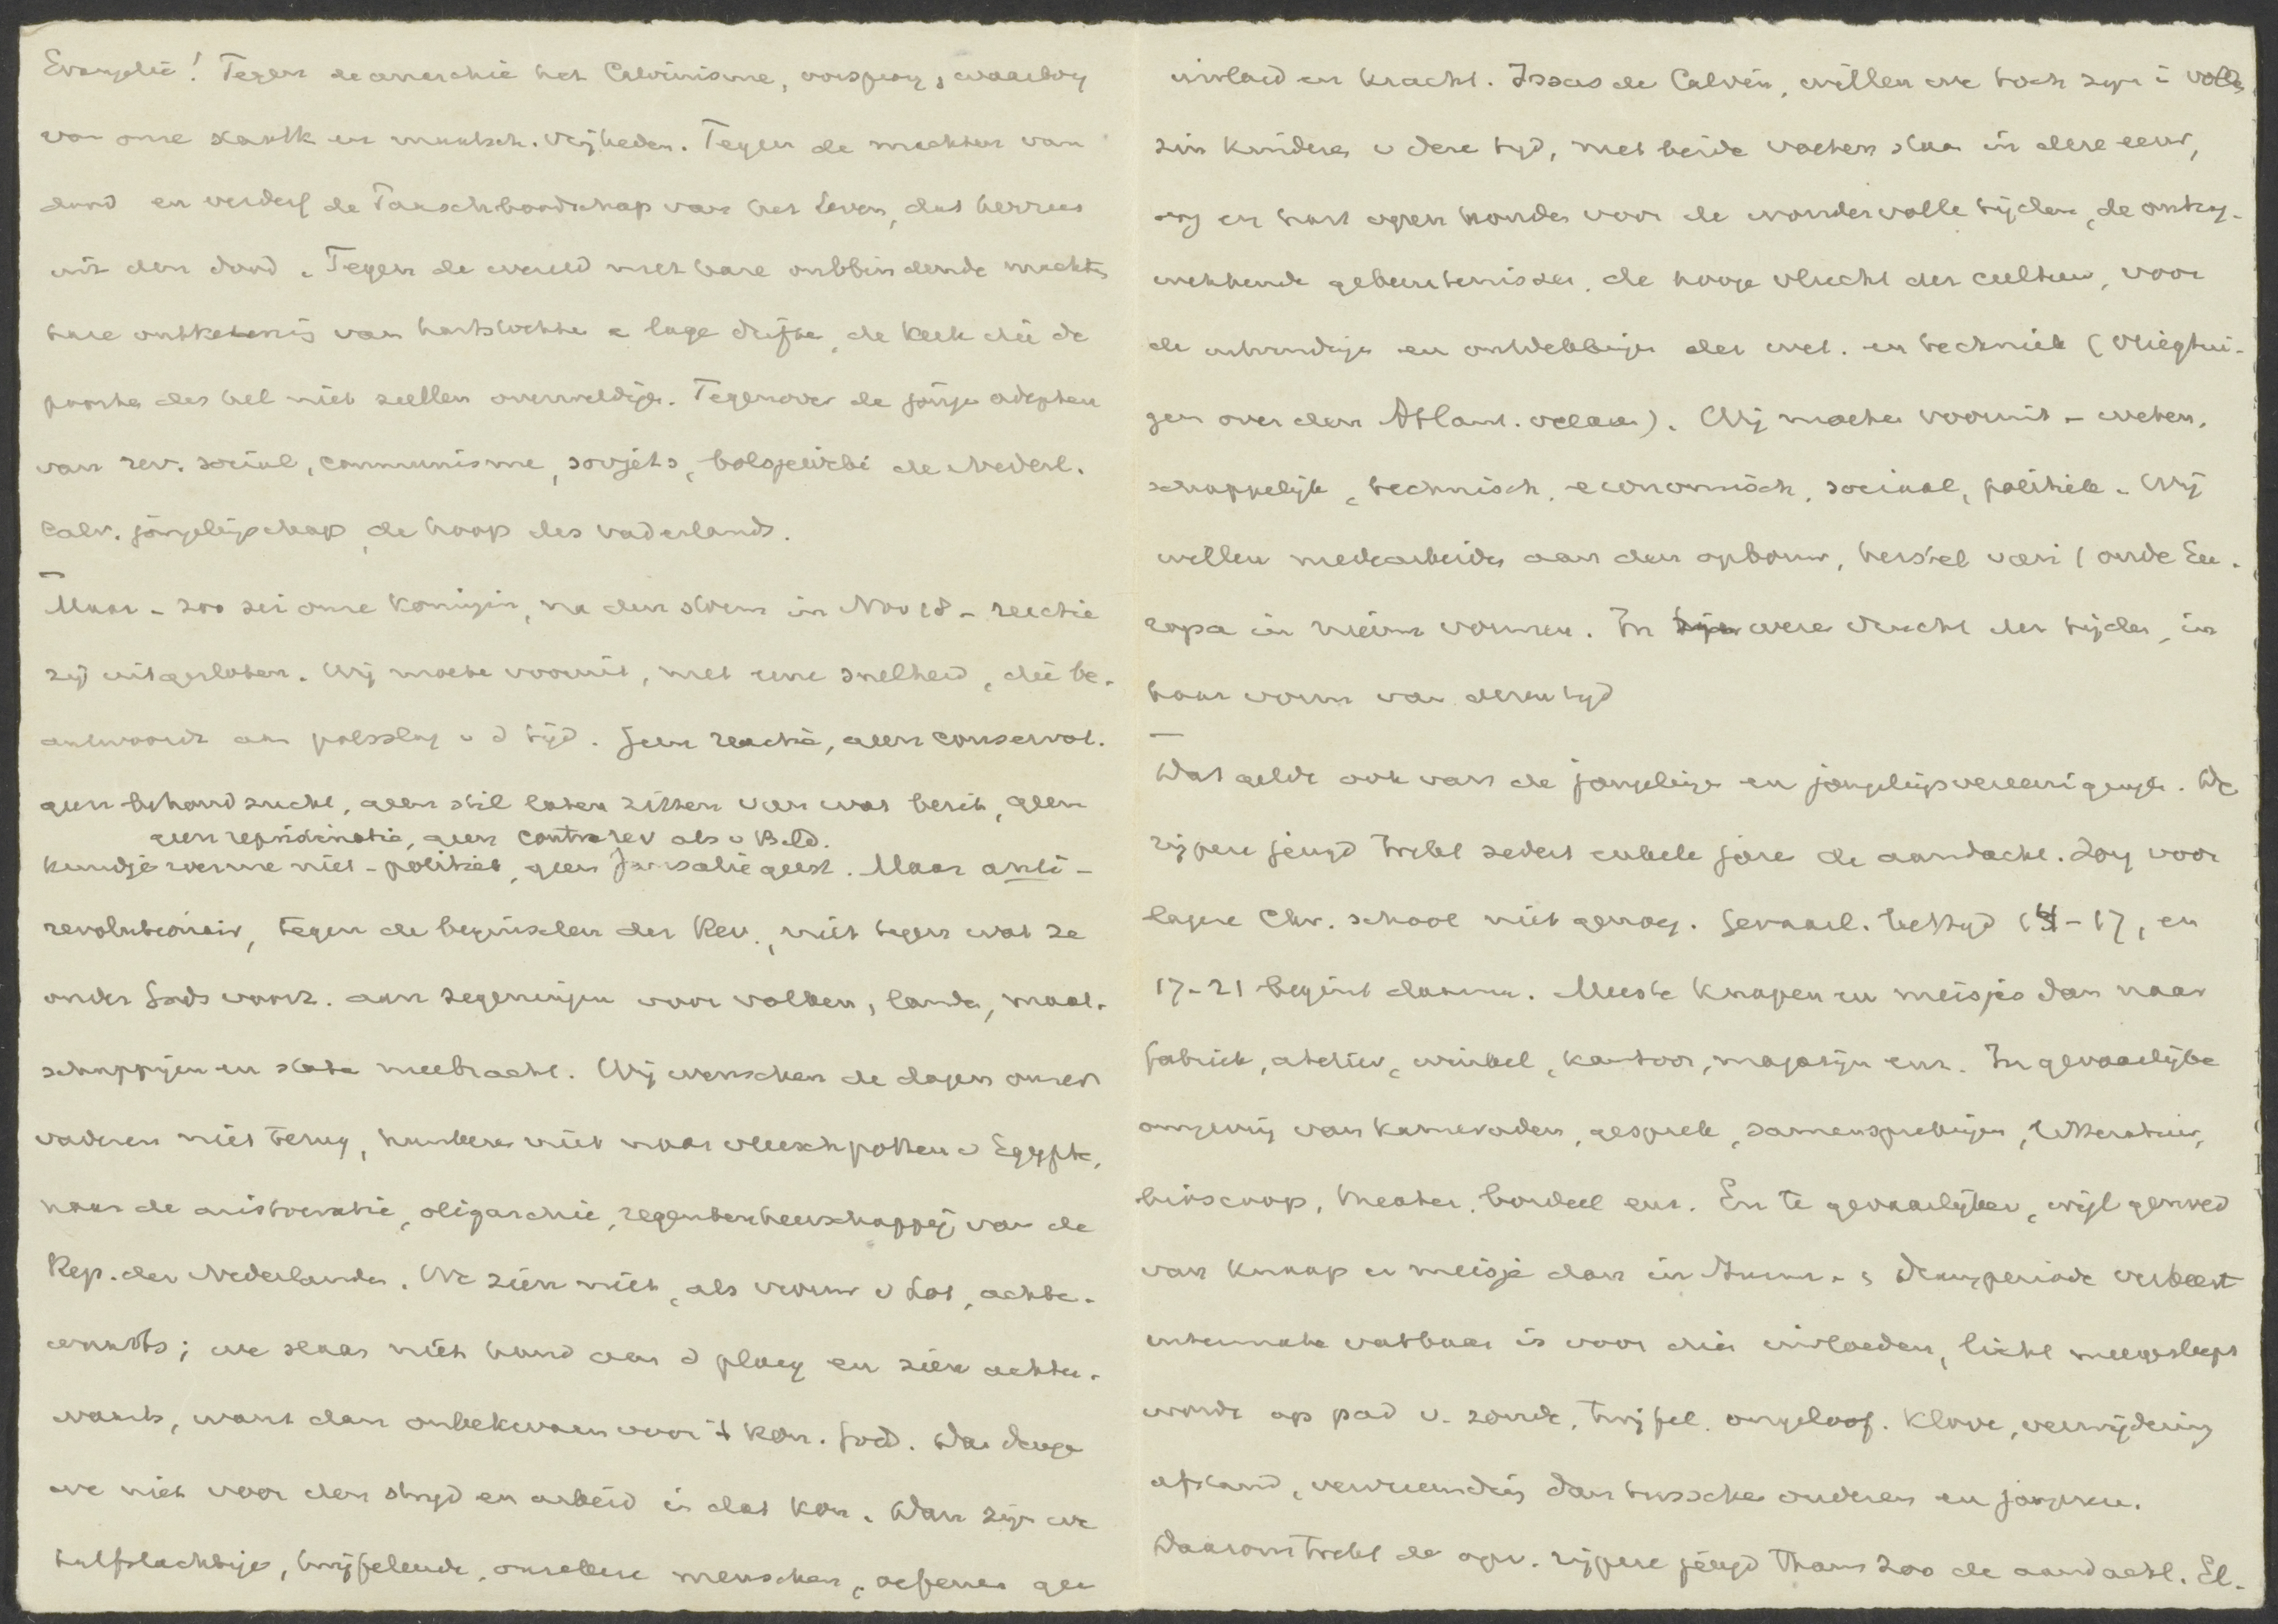 Evangelie! Tegen de anarchie het Calvinisme, oorsprong & waarborg
van onze staatk en maatsch. vrijheden. Tegen de machten van
dood en verderf de Paaschboodschap van het Leven, dat herrees
uit den dood. Tegen de wereld met hare ontbindende machten
hare ontketenis van hartstochten e lage driften, de kerk die de
poorten der hel niet zullen overweldigen. Tegenover de jonge adepten
van rev. social, communisme, sovjets, bolsjewiki de Nederl.
Calv. jongelingschap, de hoop des vaderlands.
Maar - zoo zei onze Koningin, na den storm in Nov 18 - reactie
zij uitgesloten. Wij moeten vooruit, met eene snelheid, die be-
antwoordt aan polsslag v d tijd. Geen reactie, geen conservat.
geen behoudzucht, geen stil laten zitten van wat bezit, geen
geen repristinatie, geen contrarev als v Bild.
kundje roerme niet - politiek, geen Jansaliegeest. Maar anti-
revolutionair, tegen de beginselen der Rev., niet tegen wat ze
onder Gods voorz. aan zegeningen voor volken, landen, maat-
schappijen en staten meebracht. Wij wenschen de dagen onzer
vaderen niet terug, hunkeren niet naar vleeschpotten v Egypte,
naar de aristocratie, oligarchie, regentenheerschappij van de
Rep. der Nederlanden. We zien niet, als vrouw v Lot, achter-
waarts; we slaan niet hand aan d ploeg en zien achter-
waarts, want dan onbekwaam voor 't Kon. Gods. Dan deugen
we niet voor den strijd en arbeid in dat Kon. Dan zijn we
halfslachtige, twijfelende, onzekere menschen, oefenen gee
invloed en kracht. Zooals de Calvin, willen we toch zijn i vollen
zin kinderen v deze tijd, met beide voeten staan in deze eeuw,
oog en hart open houden voor de wondervolle tijden, de ontzag-
wekkende gebeurtenissen, de hooge vlucht der cultuur, voor
de uitvindingen en ontdekkingen der wet. en techniek (vliegtui-
gen over den Atlant. oceaan). Wij moeten vooruit - weten-
schappelijk, technisch, economisch, sociaal, politiek. Wij
willen medearbeiden aan den opbouw, herstel van 't oude Eu-
ropa in nieuwe vormen. In were vrucht der tijden, in
haar vorm van dezen tijd
Dat geldt ook van de jongelingen en jongelingsvereenigingen. De
rijpere jeugd trekt sedert enkele jaren de aandacht. Zorg voor
lagere Chr. school niet genoeg. Gevaarl. leeftijd 14-17, en
17-21 begint daarna. Meeste knapen en meisjes dan naar
fabriek, atelier, winkel, kantoor, magazijn enz. In gevaarlijke
omgeving van kameraden, gesprekken, samensprekingen, litteratuur,
bioscoop, theater, bordeel enz. En te gevaarlijker, wijl gemoed
van knaap en meisje dan in Sturm- & Drangperiode verkeert
uitermate vatbaar is voor die invloeden, licht meegesleept
wordt op pad v. zonde, twijfel, ongeloof. Klove, verwijdering
afstand, vervreemding dan tusschen ouderen en jongeren.
Daarom trekt de opv. rijpere jeugd thans zoo de aandacht. El-